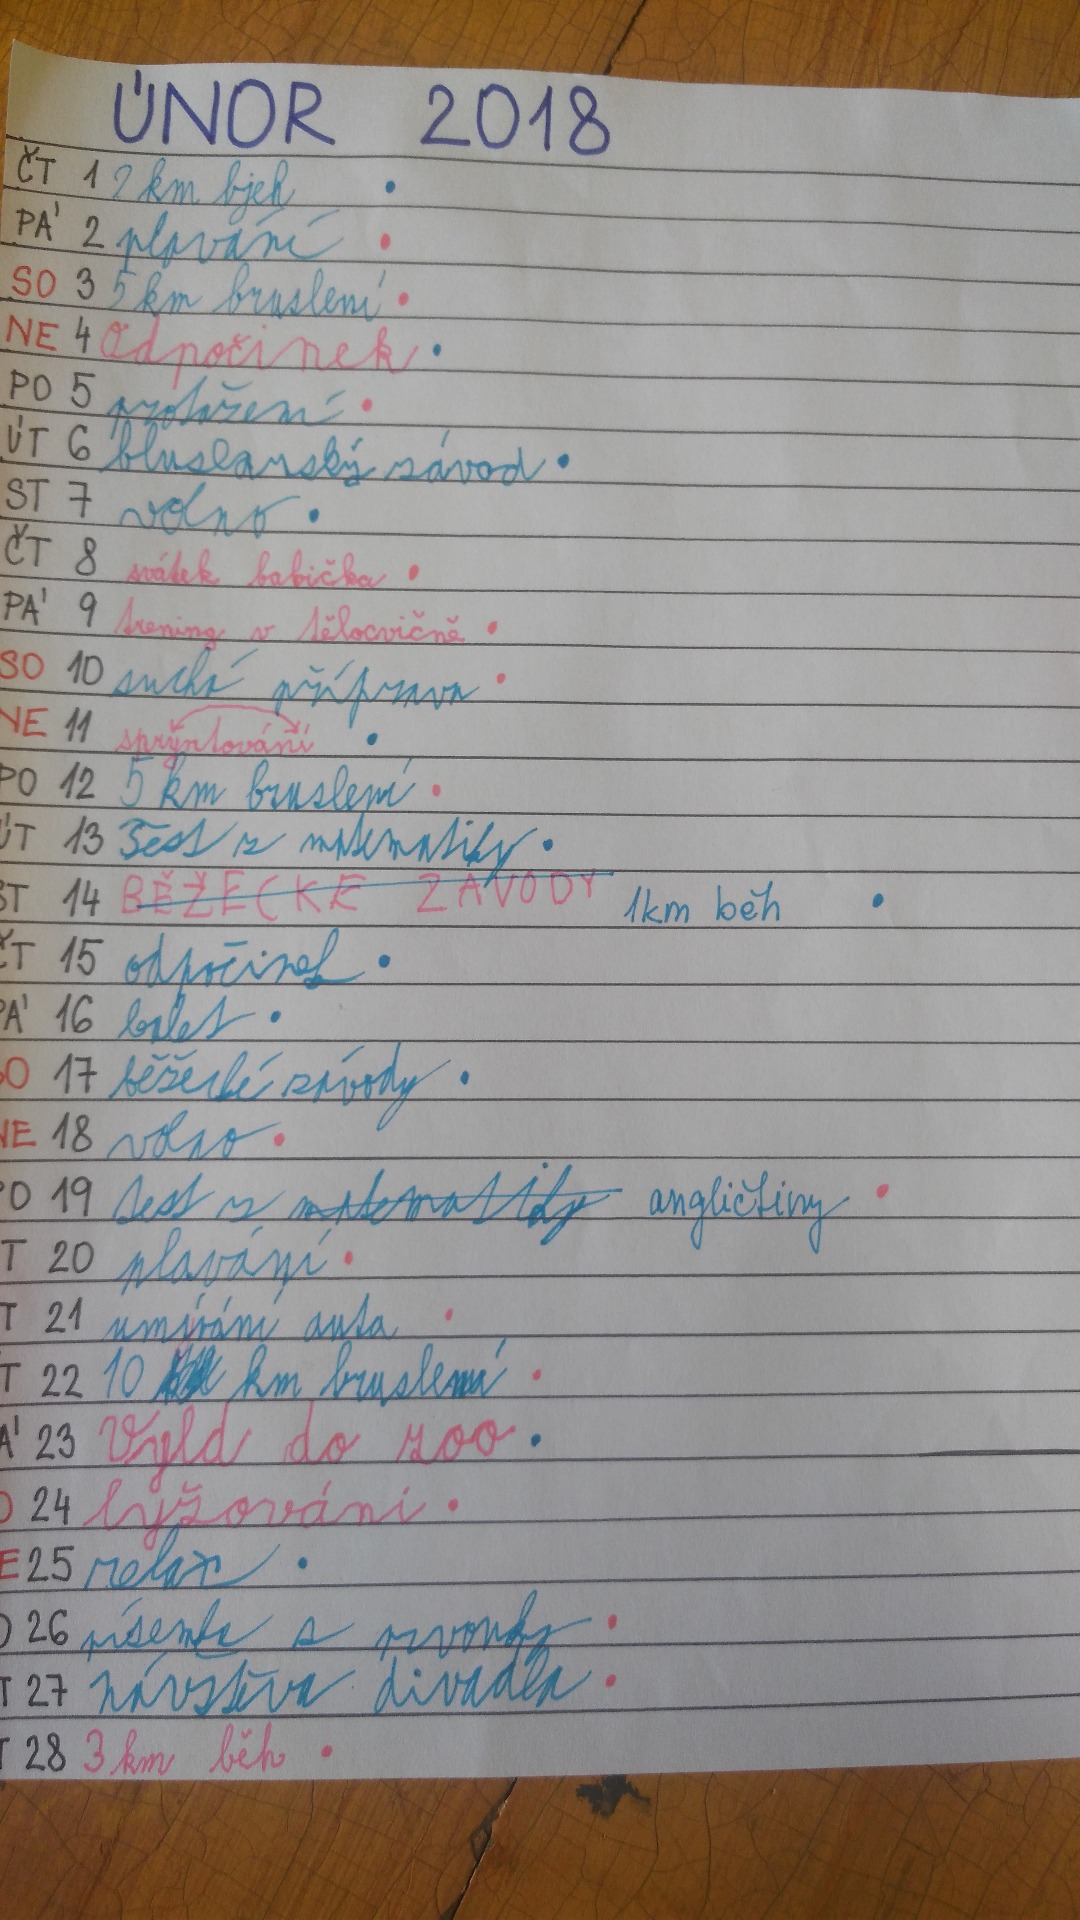 ÚNOR 2018
ČT 1 2 km bjeh
PÁ 2 plavání
SO 3 5 km bruslení
NE 4 Odpočinek
PO 5 protažení
ÚT 6 bluslarský závod
ST 7 volno
ČT 8 svátek babička
PÁ 9 trening v tělocvičně
SO 10 suchá příprava
NE 11 sprýntování
PO 12 5 km bruslení
ÚT 13 Test z matematiky
ST 14 BĚŽECKÉ ZÁVODY 1km běh
ČT 15 odpočinek
PÁ 16 balet
SO 17 běžecké závody
NE 18 volno
PO 19 test z matematiky angličtiny
T 20 plavání
T 21 umívání auta
T 22 10 km bruslení
PÁ 23 Výld do zoo
O 24 lyžováni
E 25 relax
O 26 písemka s
T 27 návštěva divadla
T 28 3 km běh